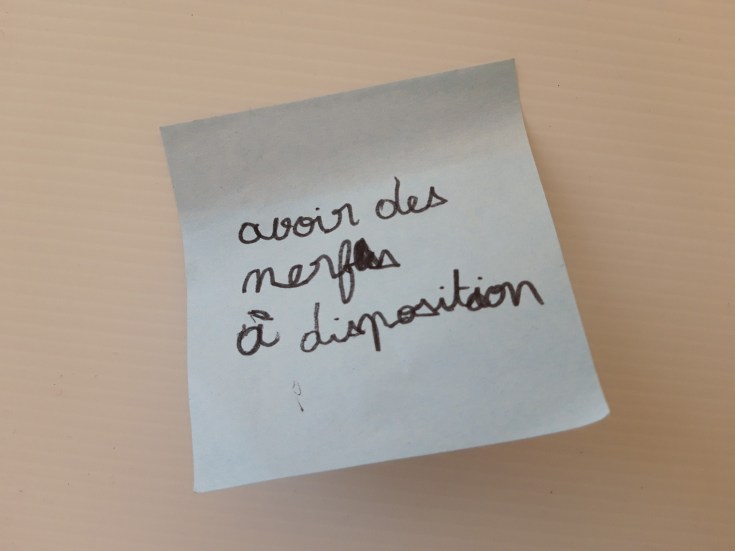 avoir des
nerfs
à disposition